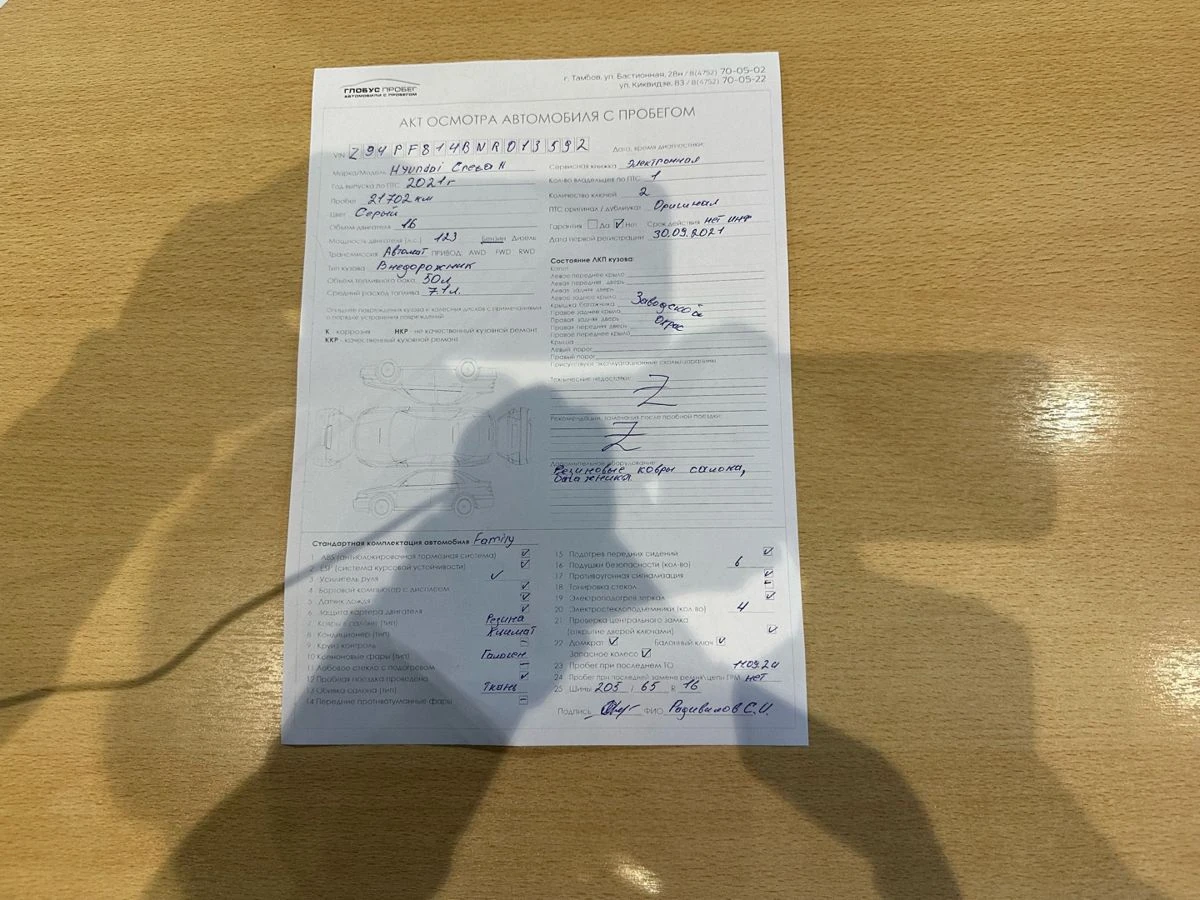 ГЛОБУС ПРОБЕГ
АВТОМОБИЛИ С ПРОБЕГОМ
г. Тамбов, ул. Бастионная, 28н / 8(4752) 70-05-02
ул. Киквидзе, 83 / 8(4752) 70-05-22
АКТ ОСМОТРА АВТОМОБИЛЯ С ПРОБЕГОМ
VIN Z94PF814BNR013592
Марка/Модель Hyundai Creta II
Год выпуска по ПТС 2021 г
Пробег 21702 км
Цвет Серый
Объем двигателя 1.6
Мощность двигателя (л.с.) 123 Бензин Дизель
Трансмиссия Автомат ПРИВОД: AWD FWD RWD
Тип кузова Внедорожник
Объем топливного бака 50л
Средний расход топлива 7.1 л.
Опишите повреждения кузова и колесных дисков с примечаниями
о порядке устранения повреждений
К - коррозия НКР - не качественный кузовной ремонт
ККР - качественный кузовной ремонт
Дата, время диагностики:
Сервисная книжка Электронная
Кол-во владельцев по ПТС 1
Количество ключей 2
ПТС оригинал / дубликат Оригинал
Гарантия Да Нет Срок действия нет инф
Дата первой регистрации 30.09.2021
Состояние ЛКП кузова:
Капот
Левое переднее крыло
Левая передняя дверь
Левая задняя дверь
Левое заднее крыло
Крышка багажника Заводской
Правое заднее крыло
Правая задняя дверь Окрас
Правая передняя дверь
Правое переднее крыло
Крыша
Левый порог
Правый порог
Присутствуют эксплуатационные сколы/царапины
Технические недостатки:
Z
Рекомендации, замечания после пробной поездки:
Z
Дополнительное оборудование:
Резиновые ковры салона,
багажника
Стандартная комплектация автомобиля Family
1 АБС (антиблокировочная тормозная система)
2 ESP (система курсовой устойчивости)
3 Усилитель руля
4 Бортовой компьютер с дисплеем
5 Датчик дождя
6 Защита картера двигателя
7 Ковры в салоне (тип) Резина
8 Кондиционер (тип) Климат
9 Круиз контроль
10 Ксеноновые фары (тип) Галоген
11 Лобовое стекло с подогревом
12 Пробная поездка проведена
13 Обивка салона (тип) Ткань
14 Передние противотуманные фары
15 Подогрев передних сидений
16 Подушки безопасности (кол-во) 6
17 Противоугонная сигнализация
18 Тонировка стекол
19 Электроподогрев зеркал
20 Электростеклоподъемники (кол-во) 4
21 Проверка центрального замка
(открытие дверей ключами)
22 Домкрат Балонный ключ
Запасное колесо
23 Пробег при последнем ТО
24 Пробег при последней замене ремня\цепи ГРМ нет
25 Шины 205 / 65 R 16
Подпись ФИО Радивилов С.И.